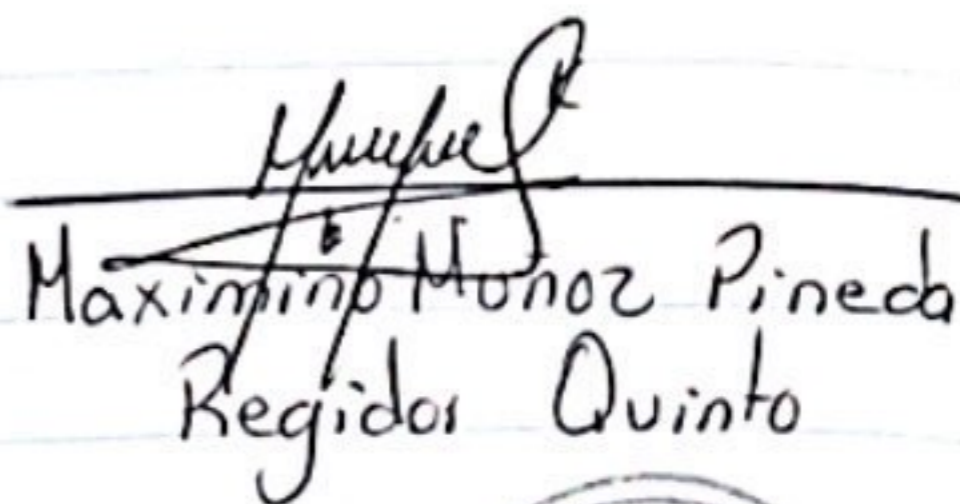 Maximino Monoz Pineda
Regidor Quinto